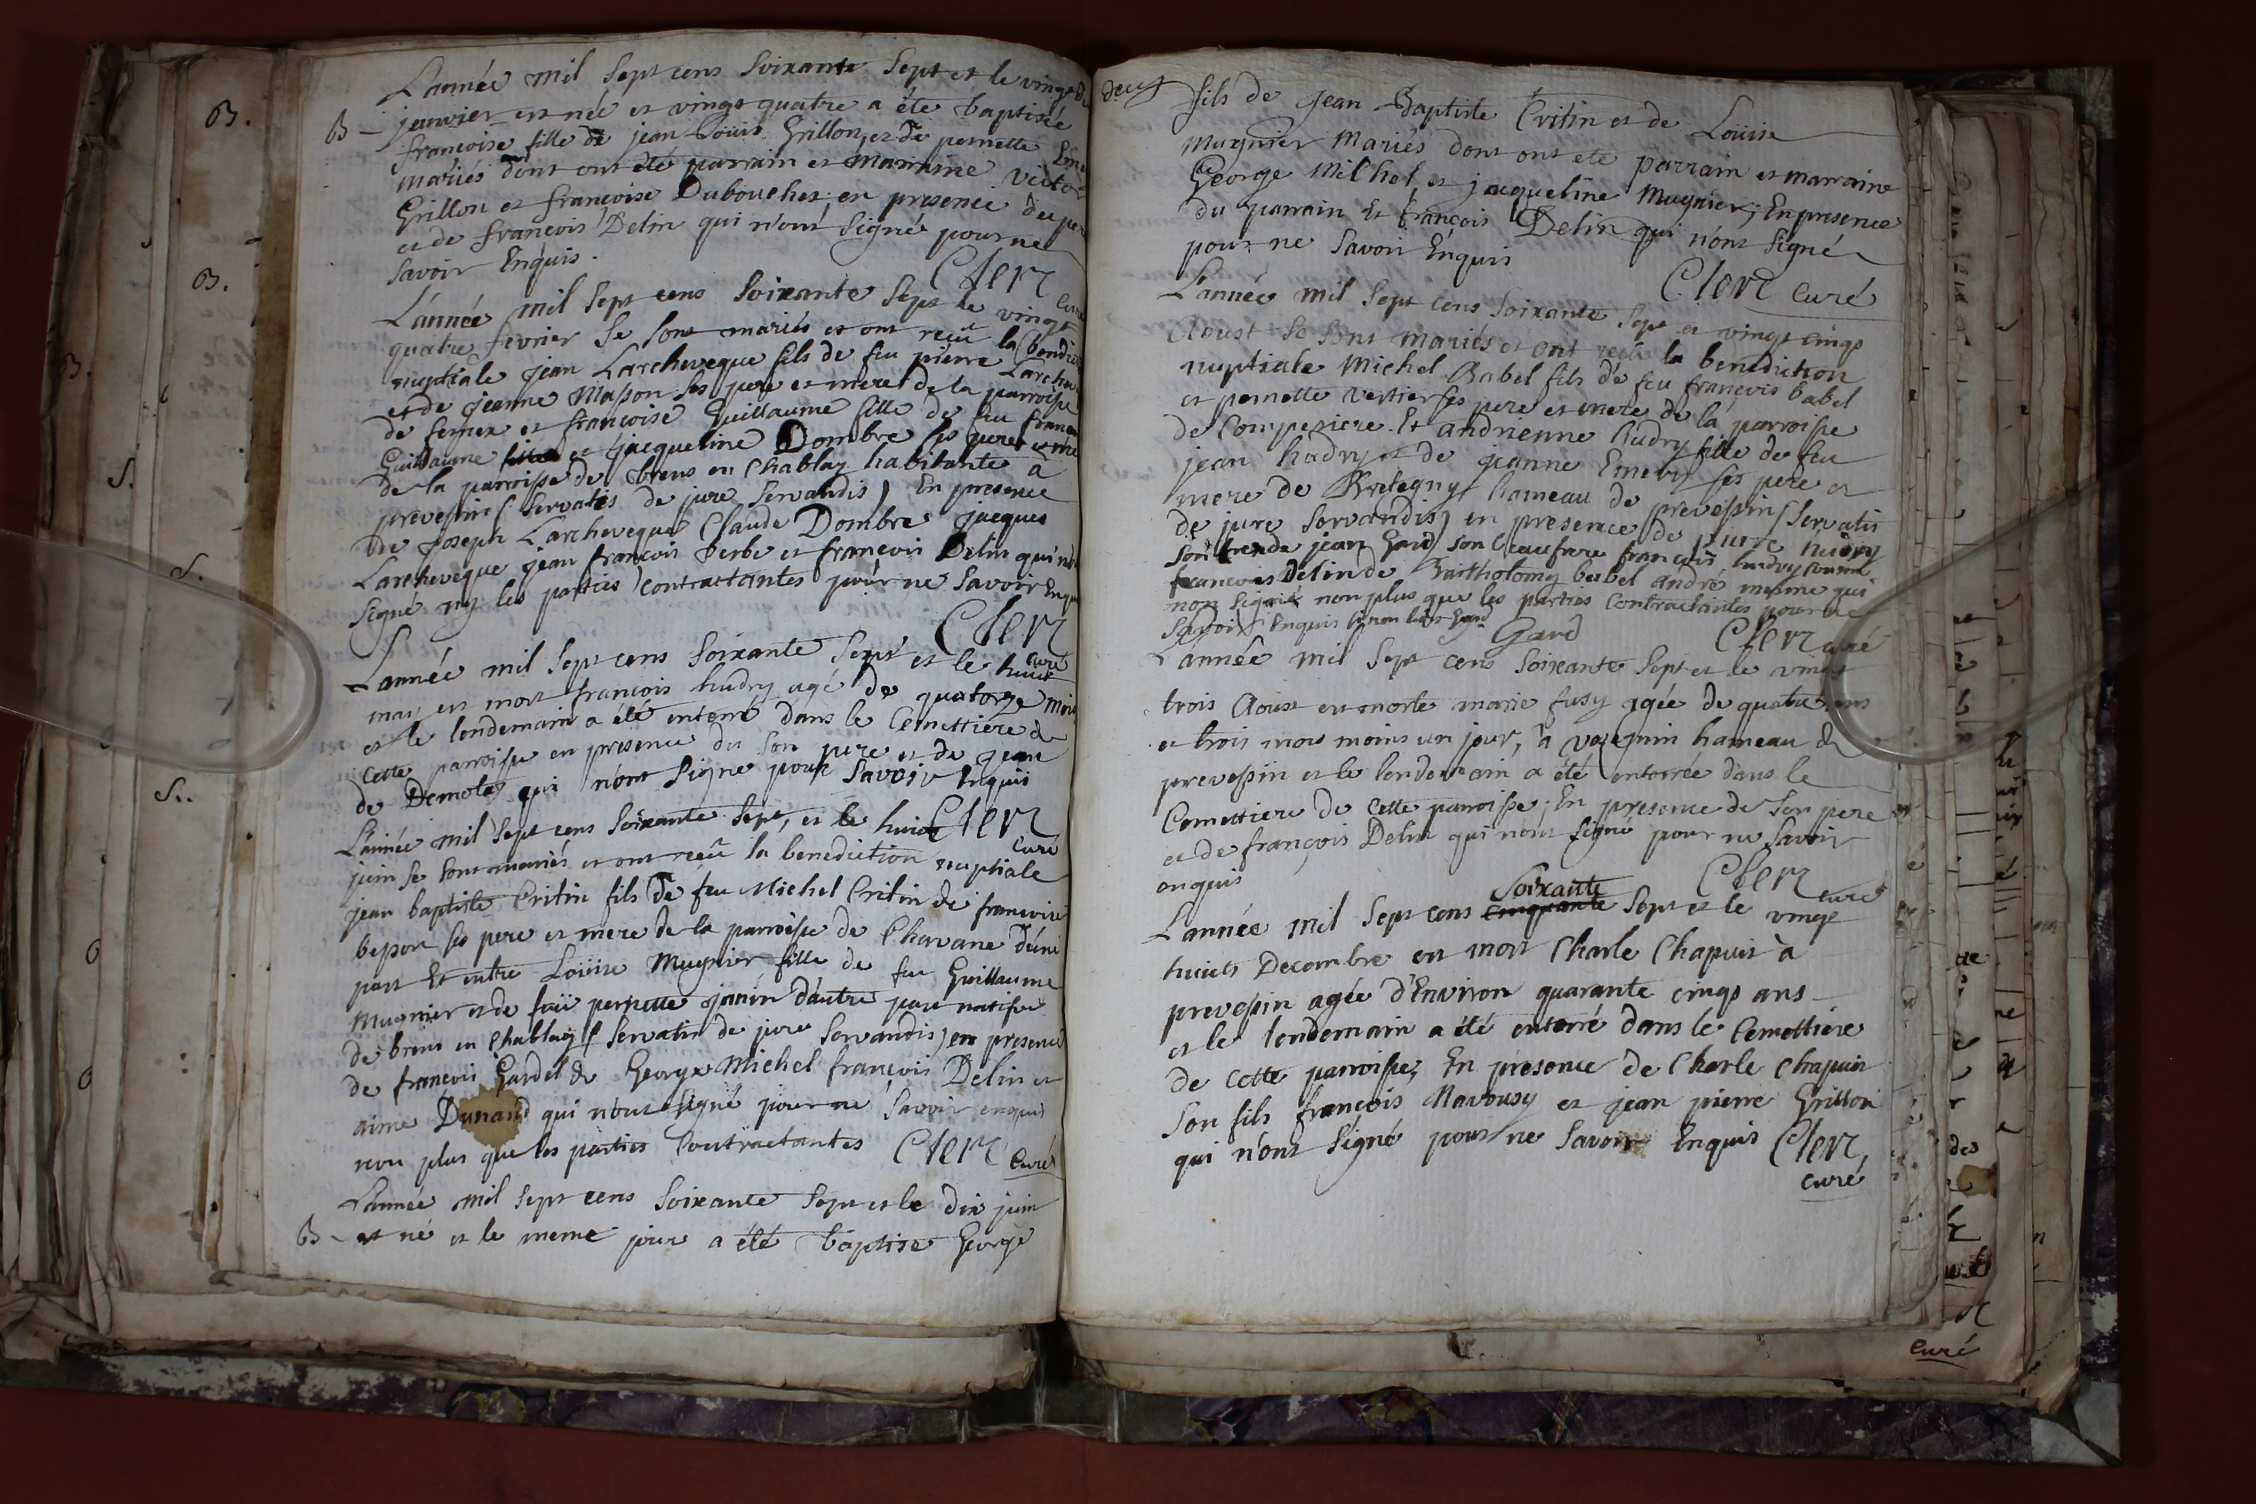 L'année mil sept cens soixante sept et le vingt deux
B janvier est née et vingt quatre a été baptisée
françoise fille de jean Louis Grillon et de pernette
mariés dont ont été parrain et marraine victor
Grillon et françoise Dubouchet en presence du pere
et de françois Delin qui n'ont signé pour ne
savoir Enquis.
Clerc curé
L'année mil sept cens soixante sept le vingt
quatre fevrier se sont mariés et ont reçû la benediction
nuptiale jean Larcheveque fils de feu pierre Larcheveque
et de jeanne Masson ses pere et mere de la parroisse
de fernex et françoise Guillaume fille de feu françois
Guillaume et jacqueline Dombre ses pere et mere
de la parroisse de brens en Chablay habitante à
prevessin (servatis de jure servandis) En presence
de joseph Larcheveque Claude Dombre jacques
Larcheveque jean françois et françois Delin qui n'ont
signé ny les parties contractantes pour ne savoir Enquis
Clerc curé
L'année mil sept cens soixante sept et le huict
may est mort françois hudry agé de quatorze mois
et le lendemain a été enterré dans le Cemettiere de
cette parroisse en presence du son pere et de jean
de Demoter qui n'ont signé pour savoir Enquis
Clerc curé
L'année mil sept cens soixante sept, et le huict
juin se sont mariés et ont reçû la benediction nuptiale
jean baptiste Critin fils de feu Michel Critin de françoise
besson ses pere et mere de la parroisse de Chavane d'une
part Et entre Loüise Mugnier fille de feu Guillaume
Mugnier et de feüe pernette janin d'autre part native
de brens en Chablay (servatis de jure servandis) en presence
de françois Gardel de George Michel françois Delin et
aime Dunand qui n'ont signé pour ne savoir enquis
non plus que les parties Contractantes Clerc Curé
L'année mil sept cens soixante sept et le dix juin
B est né et le meme jour a été baptisé George
fils de jean Baptiste Critin et de Loüise
Mugnier Mariés dont ont eté parrain et marraine
George Michel, et jacqueline Mugnier; En presence
du parrain Et françois Delin qui n'ont signé
pour ne savoir Enquis
Clerc Curé
L'année mil sept cens soixante sept et vingt cinqs
Aoust se sont mariés et ont reçû la benediction
nuptiale Michel Babel fils de feu françois babel
et pernette vertier ses pere et mere de la parroisse
de Compesiere. Et andrienne hudry fille de feu
jean hudry et de jeanne Emery ses pere et
mere de Bretegny hameau de prevessin (servatis
de jure servandis) en presence de pierre hudry
son frere de jean Gard son beaufrere françois hudry
françois Delin de Bartholomy babel andré qui
non signé non plus que les parties Contractantes pour ne
savoir Enquis Gard
Gard Clerc curé
L'année mil sept cens soixante sept et le vingt
trois Aoust est morte marie fusy agée de quatre ans
et trois mois moins un jour, à vesegnin hameau de
prevessin et le lendemain a été enterrée dans le
Cemettiere de cette parroisse; En presence de son pere
et de françois Delin qui n'ont signé pour ne savoir
enquis
Clerc curé
L'année mil sept cens cinquante soixante sept et le vingt
huicts Decembre est mort Charle Chapuis à
prevessin agée d'Environ quarante cinqs ans
et le lendemain a été enterré dans le Cemettiere
de cette parroisse, En presence de Charle Chapuis
son fils françois Navousy et jean pierre Grillon
qui n'ont signé pour ne savoir Enquis Clerc,
curé